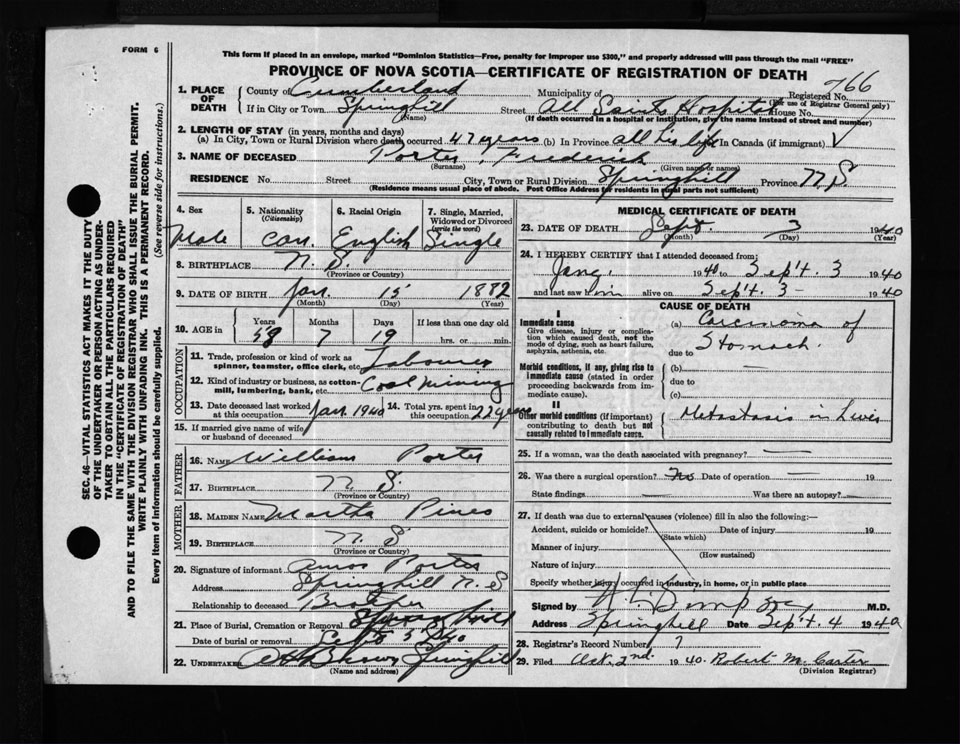 FORM 6
This form if placed in an envelope, marked "Dominion Statistics—Free, penalty for improper use $300," and properly addressed will pass through the mail "FREE"
PROVINCE OF NOVA SCOTIA—CERTIFICATE OF REGISTRATION OF DEATH
766
1. PLACE OF DEATH County of Cumberland Municipality of Registered No.
(For use of Registrar General only)
If in City or Town Springhill Street All Saints Hospital House No.
(Name) (If death occurred in a hospital or institution, give the name instead of street and number)
2. LENGTH OF STAY (in years, months and days)
(a) In City, Town or Rural Division where death occurred 47 years (b) In Province all his life In Canada (if immigrant)
3. NAME OF DECEASED Porter, Frederick
(Surname) (Given name or names)
RESIDENCE No. Street City, Town or Rural Division Springhill Province N.S.
(Residence means usual place of abode. Post Office Address for residents in rural parts not sufficient)
4. Sex 5. Nationality (Citizenship) 6. Racial Origin 7. Single, Married, Widowed or Divorced (write the word)
Male Can. English Single
8. BIRTHPLACE N.S.
(Province or Country)
9. DATE OF BIRTH Jan. 15 1882
(Month) (Day) (Year)
10. AGE in Years Months Days If less than one day old
58 7 19 hrs. or min.
OCCUPATION
11. Trade, profession or kind of work as spinner, teamster, office clerk, etc. Labourer
12. Kind of industry or business, as cotton-mill, lumbering, bank, etc. Coal Mining
13. Date deceased last worked at this occupation Jan. 1940 14. Total yrs. spent in this occupation 22 years
15. If married give name of wife or husband of deceased
FATHER
16. NAME William Porter
17. BIRTHPLACE N.S.
(Province or Country)
MOTHER
18. MAIDEN NAME Martha Pines
19. BIRTHPLACE N.S.
(Province or Country)
20. Signature of informant Amos Porter
Address Springhill N.S
Relationship to deceased Brother
21. Place of Burial, Cremation or Removal
Date of burial or removal Sept 5 1940
22. UNDERTAKER Brown Springhill
(Name and address)
MEDICAL CERTIFICATE OF DEATH
23. DATE OF DEATH Sept. 3 1940
(Month) (Day) (Year)
24. I HEREBY CERTIFY that I attended deceased from:
1940 to Sept. 3 1940
and last saw him alive on Sept. 3 1940
CAUSE OF DEATH
I
Immediate cause
Give disease, injury or complication which caused death, not the mode of dying, such as heart failure, asphyxia, asthenia, etc.
(a) Carcinoma of
Stomach.
due to
Morbid conditions, if any, giving rise to immediate cause (stated in order proceeding backwards from immediate cause).
(b)
due to
(c)
II
Other morbid conditions (if important) contributing to death but not causally related to immediate cause.
Metastasis in Liver
25. If a woman, was the death associated with pregnancy?
26. Was there a surgical operation? No Date of operation 19
State findings Was there an autopsy?
27. If death was due to external causes (violence) fill in also the following:—
Accident, suicide or homicide? Date of injury 19
(State which)
Manner of injury
(How sustained)
Nature of injury
Specify whether injury occurred in industry, in home, or in public place
Signed by M.D.
Address Springhill Date Sept. 4 1940
28. Registrar's Record Number 7
29. Filed Oct. 2nd. 1940. Robert M. Carter
(Division Registrar)
SEC. 46—VITAL STATISTICS ACT MAKES IT THE DUTY
OF THE UNDERTAKER OR PERSON ACTING AS UNDER-
TAKER TO OBTAIN ALL THE PARTICULARS REQUIRED
IN THE "CERTIFICATE OF REGISTRATION OF DEATH"
AND TO FILE THE SAME WITH THE DIVISION REGISTRAR WHO SHALL ISSUE THE BURIAL PERMIT.
WRITE PLAINLY WITH UNFADING INK. THIS IS A PERMANENT RECORD.
Every item of information should be carefully supplied. (See reverse side for instructions.)